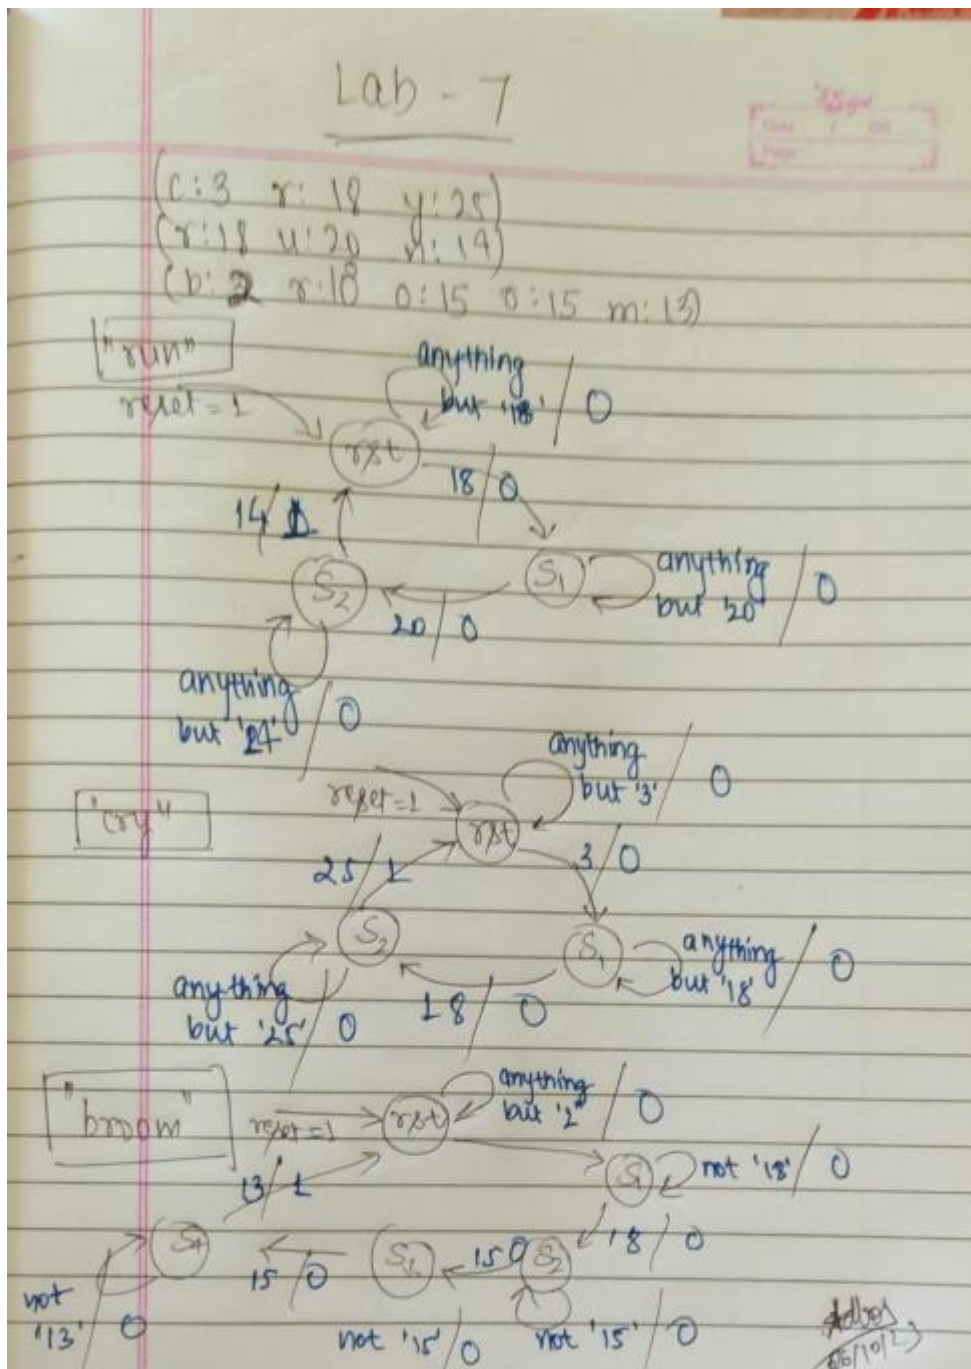 Lab - 7
Date / /20
Page
(c:3 r: 18 y:25)
(r:18 u:20 n:14)
(b:2 r:18 o:15 o:15 m:13)
"run"
reset = 1
anything
but '18' / 0
rst
18 / 0
14 / 1
S2
S1
anything
but '20' / 0
20 / 0
anything
but '24' / 0
"cry"
reset=1
anything
but '3' / 0
rst
25 / 1
3 / 0
S2
S1
anything
but '18' / 0
anything
but '25' / 0
18 / 0
"broom"
reset=1
rst
anything
but '2' / 0
13 / 1
S1
not '18' / 0
S4
15 / 0
S3
15 0
S2
18 / 0
not
'13' / 0
not '15' / 0
not '15' / 0